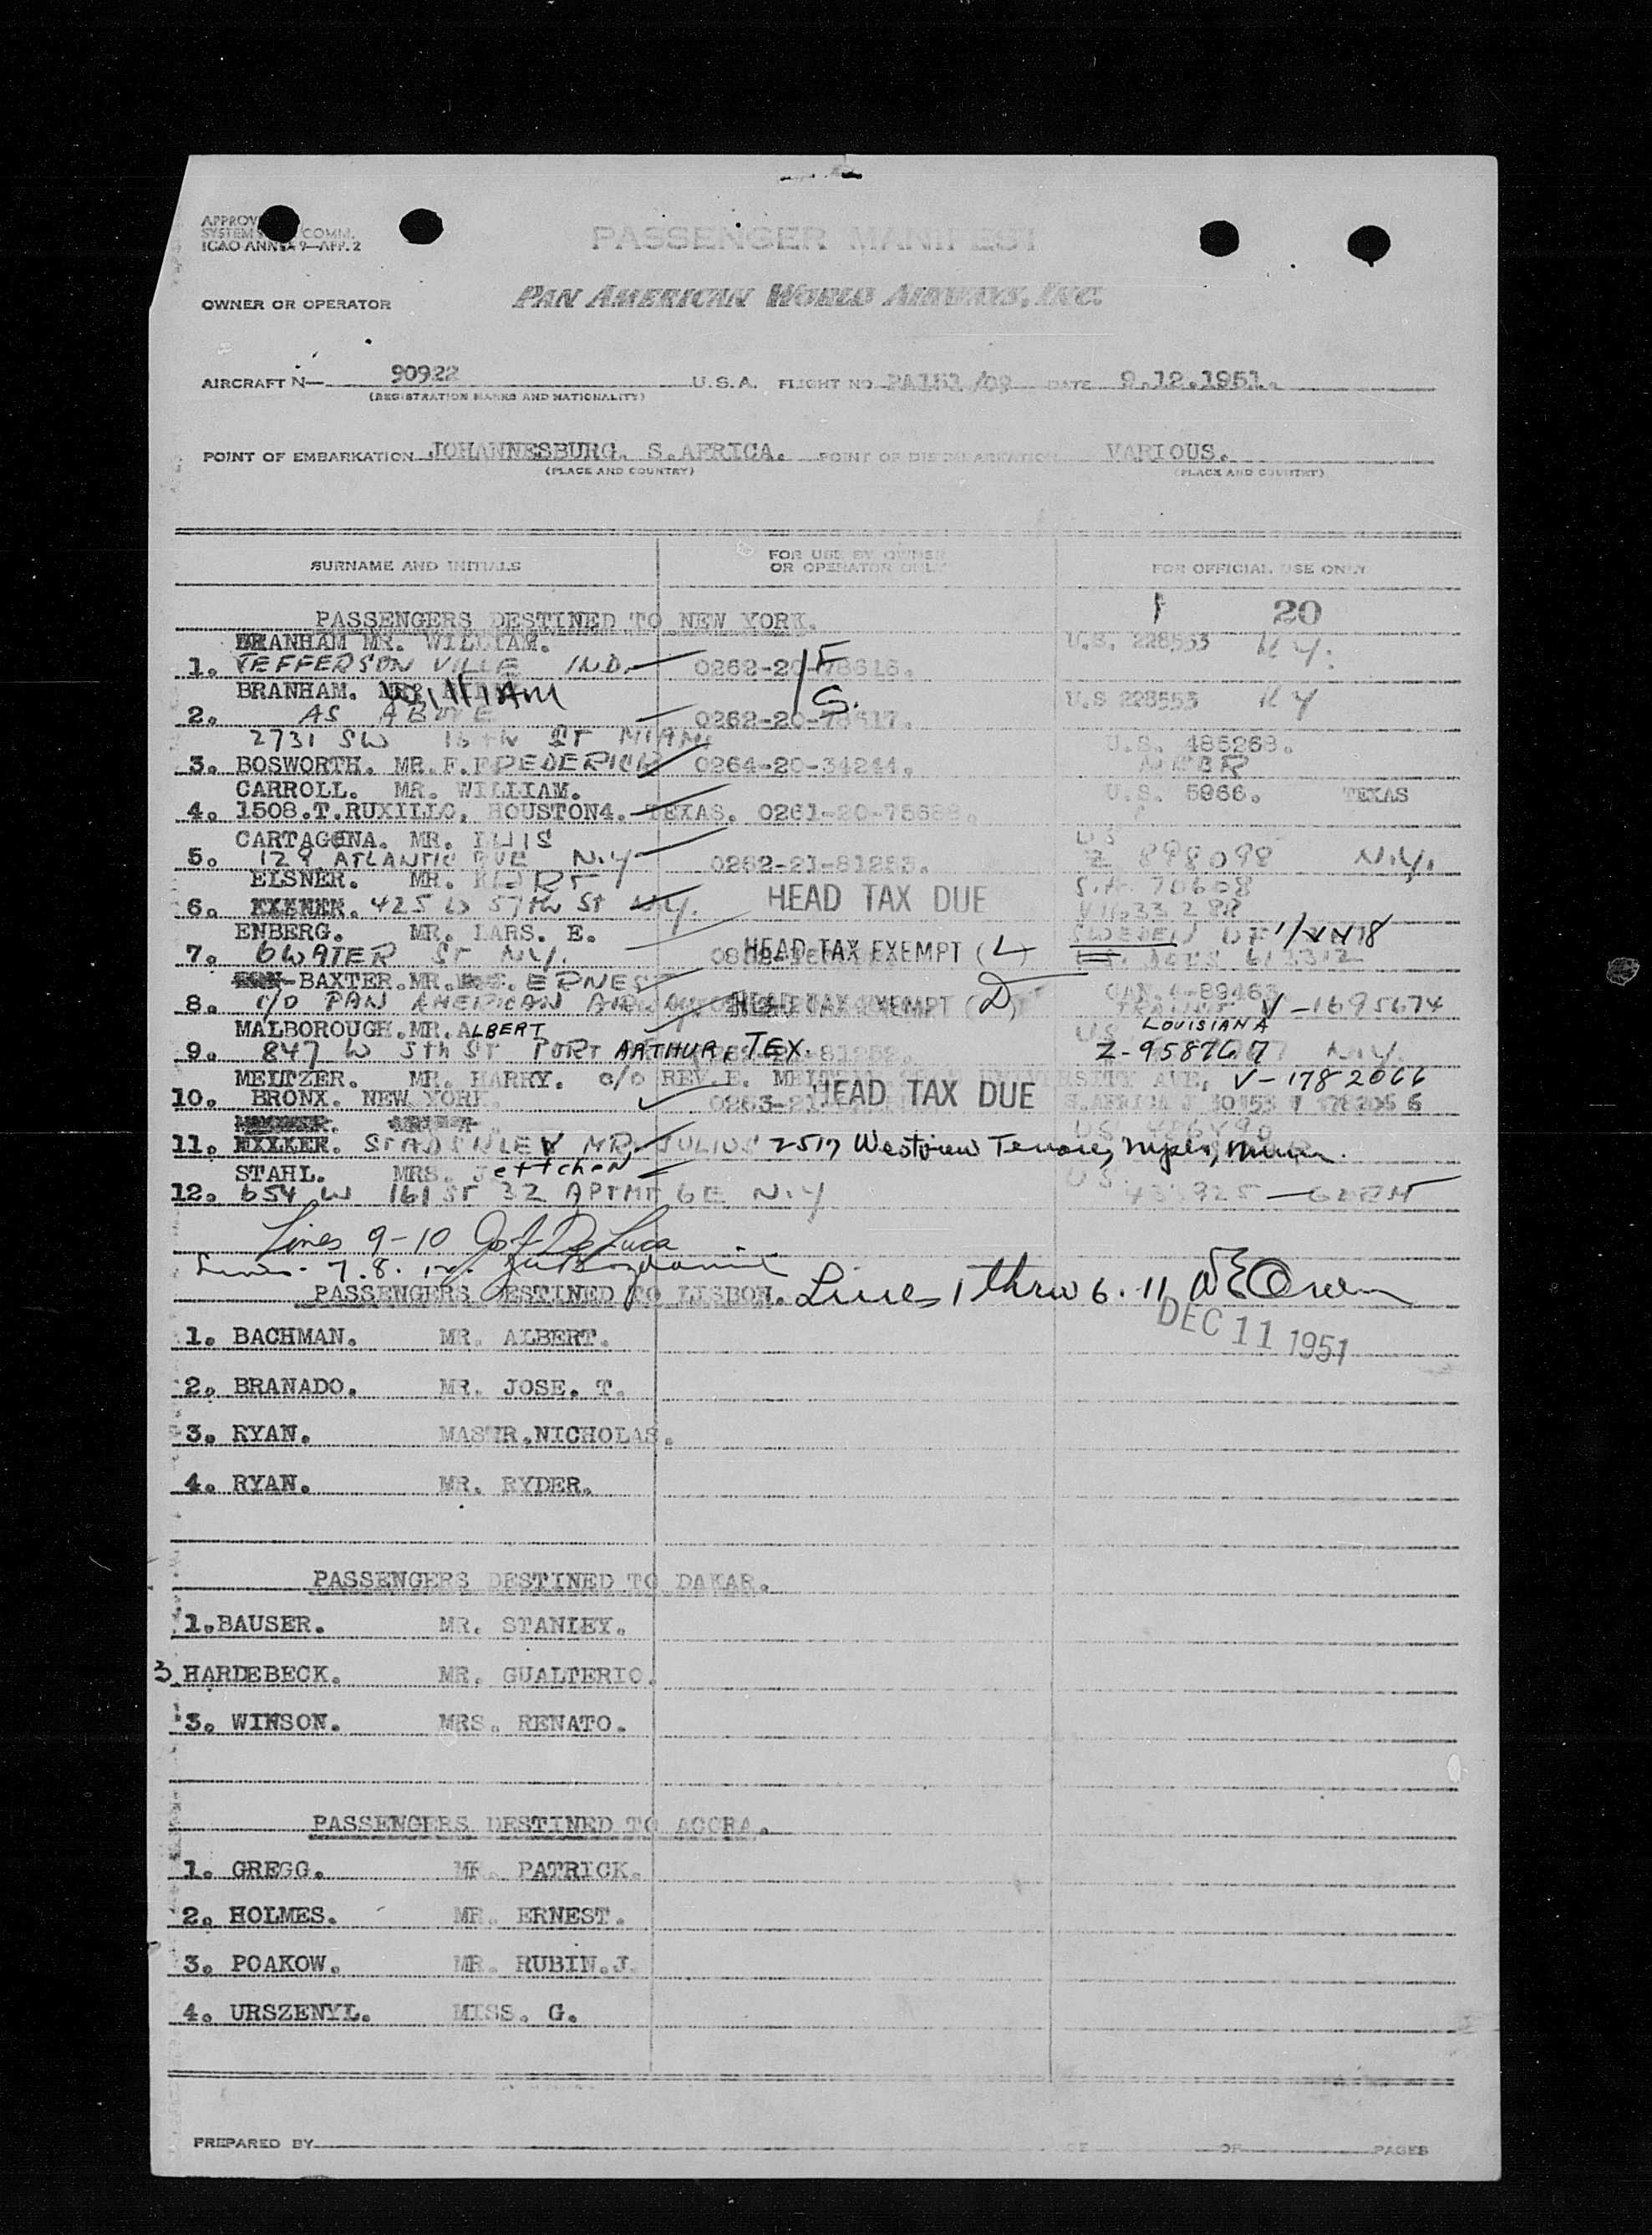 APPROV
SYSTEM COMM.
ICAO ANNEX 9—APP. 2
PASSENGER MANIFEST
OWNER OR OPERATOR PAN AMERICAN WORLD AIRWAYS, INC.
AIRCRAFT N— 90922 U.S.A. FLIGHT NO PA151/09 DATE 9.12.1951.
(REGISTRATION MARKS AND NATIONALITY)
POINT OF EMBARKATION JOHANNESBURG. S.AFRICA. POINT OF DISEMBARKATION VARIOUS.
(PLACE AND COUNTRY) (PLACE AND COUNTRY)
SURNAME AND INITIALS FOR USE BY OWNER OR OPERATOR ONLY FOR OFFICIAL USE ONLY
PASSENGERS DESTINED TO NEW YORK. 20
BRANHAM MR. WILLIAM. U.S. 228553 KY.
1. JEFFERSONVILLE IND. 0262-20-78616. F
BRANHAM. WILLIAM U.S 228553 KY
2. AS ABOVE 0262-20-78617. S.
2731 SW 16TH ST MIAMI U.S. 485268.
3. BOSWORTH. MR. F. FREDERICK 0264-20-34244. NEBR
CARROLL. MR. WILLIAM. U.S. 5966. TEXAS
4. 1508.T.RUXILLO, HOUSTON4. TEXAS. 0261-20-75688.
CARTAGENA. MR. LUIS US
5. 129 ATLANTIC AVE N.Y 0262-21-81283. Z 898098 N.Y.
ELSNER. MR. KURT S.A. 70608
6. 425 W 57TH ST N.Y. HEAD TAX DUE
ENBERG. MR. LARS. E. SWEDEN
7. 6 WATER ST N.Y. HEAD TAX EXEMPT (L)
BAXTER. MR. ERNEST CAN. 4-89463
8. C/O PAN AMERICAN AIRWAYS HEAD TAX EXEMPT (D) V-1695674
MALBOROUGH. MR. ALBERT US LOUISIANA
9. 847 W 5th ST PORT ARTHUR, TEX. Z-958767 N.Y.
MELTZER. MR. HARRY. c/o REV. E. UNIVERSITY AVE. V-1782066
10. BRONX. NEW YORK. HEAD TAX DUE S.AFRICA
11. STADSNLEV MR. JULIUS 2517 Westview Terrace, Mpls, Minn.
STAHL. MRS. Jettchen US.
12. 654 W 161 ST 32 APTMT 6E N.Y
Lines 9-10 Jos A De Luca
Lines 7. 8. 12.
PASSENGERS DESTINED TO LISBON. Lines 1 thru 6. 11 WE Owen
DEC 11 1951
1. BACHMAN. MR. ALBERT.
2. BRANADO. MR. JOSE. T.
3. RYAN. MASTR. NICHOLAS.
4. RYAN. MR. RYDER.
PASSENGERS DESTINED TO DAKAR.
1. BAUSER. MR. STANLEY.
3 HARDEBECK. MR. GUALTERIO.
3. WINSON. MRS. RENATO.
PASSENGERS DESTINED TO ACCRA.
1. GREGG. MR. PATRICK.
2. HOLMES. MR. ERNEST.
3. POAKOW. MR. RUBIN.J.
4. URSZENYL. MISS. G.
PREPARED BY OF PAGES